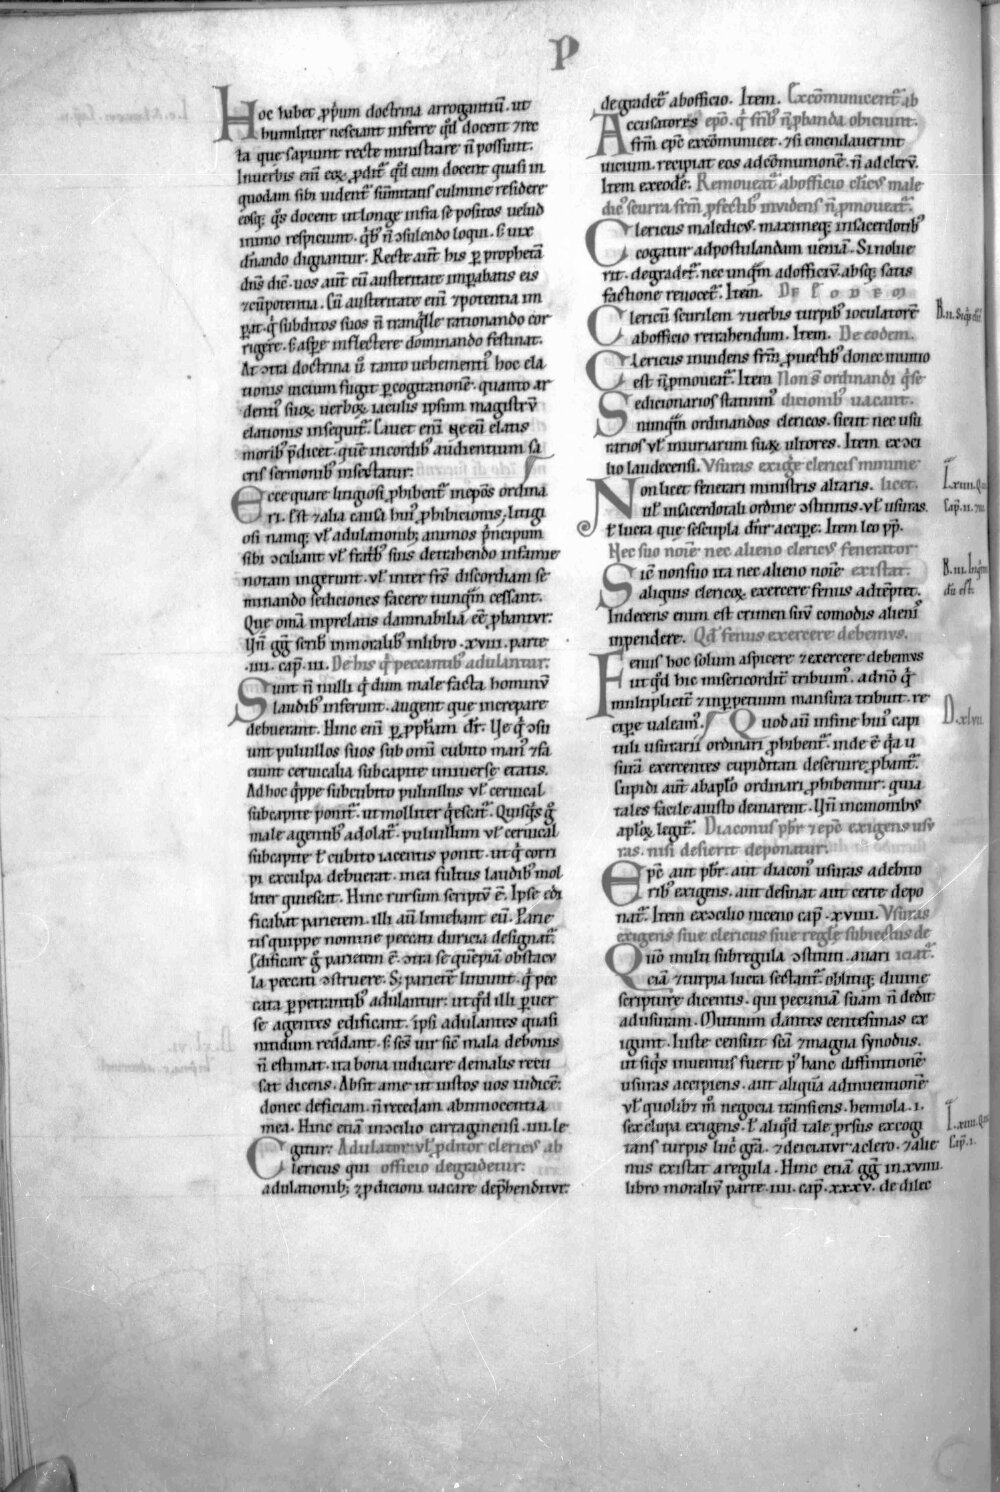 P
Hoc habet ꝓpͥum doctrina arrogantiū. ut
humiliter nesciant inferre qd̄ docent ⁊ rec
ta que sapiunt recte ministrare n̄ possunt.
In verbis eni᷒ eoꝝ ꝓdit᷑ qd̄ cum docent quasi in
quodam sibi uident᷑ su᷒mitatis culmine residere
eosq; q̄s docent ut longe infra se positos uelud
in imo respiciunt. qͥb᷒ n̄ ↄsulendo loqui. s᷒ uix
dn̄ando dignantur. Recte aut̄ his ꝑ prophetā
dn̄s dic̄. uos aut̄ cū austeritate impabatis eis
⁊ cū potentia. Cū austeritate eni᷒ ⁊ potentia im
pat qͥ subditos suos n̄ tranqͥlle rationando cor
rigere. s᷒ asꝑe inflectere dominando festinat.
At ↄtra doctrina u᷒ tanto uehementi᷒ hoc ela
tionis uicium fugit ꝑ cogitationē. quanto ar
denti᷒ suoꝝ uerboꝝ iaculis ipsum magistrū
elationis insequit᷑. Cauet eni᷒ ne eū elatis
morib᷒ p̄dicet. que in cordib᷒ audientium sa
cris sermonib᷒ insectatur:
Ecce quare litigiosi ꝓhibent᷑ in epōs ordina
ri. Est ⁊ alia causa hui᷒ ꝓhibicionis. Litigi
osi namq; ul̄ adulationib; animos p̄ncipum
sibi ↄciliant ul̄ fratrib᷒ suis detrahendo infamie
notam ingerunt. ul̄ inter frs̄ discordiam se
minando sediciones facere nunqͣm cessant.
Que om̄ia in prelatis damnabilia ēē ꝓbantur.
Un̄ gḡ scrib᷑ in moralib᷒ in libro .xviii. parte
.iiii. cap̄ .iii. De his qͥ peccantib᷒ adulantur:
Sunt n̄ nulli qͥ dum male facta hominū
laudib᷒ inferunt. augent que increpare
debuerant. Hinc eni᷒ ꝑ ꝓph̄am dr̄. Ue qͥ ↄsu
unt puluillos suos sub om̄i cubito man᷒ ⁊ fa
ciunt ceruicalia sub capite uniuersę etatis.
Ad hoc qͥppe sub cubito puluillus ul̄ ceruical
sub capite ponit᷑. ut molliter qͥescat᷑. Quisqͥs gͦ
male agentib᷒ adolat᷑. puluillum ul̄ ceruical
sub capite ul̄ cubito iacentis ponit. ut qͥ corri
pi ex culpa debuerat. in ea fultus laudib᷒ mol
liter quiescat. Hinc rursum scriptū ē. Ipse edi
ficabat parietem. illi aū liniebant eū. Parie
tis quippe nomine peccati duricia designat᷑.
Edificare gͦ parietem ē. ↄtra se quēpiā obstacu
la peccati ↄstruere. S; parietē liniunt. qͥ pec
cata ꝑpetrantib᷒ adulantur: ut qd̄ illi ꝑuer
se agentes edificant. ipsi adulantes quasi
nitidum reddant. s᷒ scs̄ uir sic̄ mala de bonis
n̄ estimat. ita bona iudicare de malis recu
sat dicens. Absit a me ut iustos uos iudicē.
donec deficiam. n̄ recedam ab innocentia
mea. Hinc etiā in ↄcilio cartaginensi .iiii. le
gitur: Adulator ul̄ ꝓditor clericus ab
Clericus qui officio degradetur:
adulationib; ⁊ ꝓdicioni uacare dep̄henditur:
degradet᷑ ab officio. Item. Excōmunicent᷑ ab
Accusatores epō. qͥ frīb᷒ n̄ ꝓbanda obiciunt.
frm̄ epc̄ excōmunicet. ⁊ si emendauerint
uicium. recipiat eos ad cōmunionē. n̄ ad clerū.
Item ex eodē. Remoueat᷑ ab officio clic᷒ male
dic᷒ scurra frm̄ ꝓfectib᷒ inuidens n̄ ꝓmoueat᷑.
Clericus maledicus. maxime q; in sacerdotib᷒
cogatur ad postulandum ueniā. Si nolue
rit. degradet᷑. nec unqͣm ad officiū absq; satis
factione reuocet᷑. Item. De eodem
Clericū scurilem ⁊ uerbis turpib᷒ ioculatorē
ab officio retrahendum. Item. De eodem.
Clericus inuidens frm̄ ꝓuectib᷒ donec in uitio
est n̄ ꝓmoueat᷑. Item Non st̄ ordinandi qͥ se
Sedicionarios statuim᷒ dicionib᷒ uacant.
nunqͣm ordinandos clericos. sicut nec usu
rarios ul̄ iniuriarum suaꝝ ultores. Item ex ↄci
lio laudecensi. Usuras exigͤe clericis minime
Non licet fenerari ministris altaris. licet.
ul̄ in sacerdotali ordine ↄstitutis. ul̄ usuras.
ul̄ lucra que sescupla dn̄r accipe. Item leo pp̄.
Nec suo noīe nec alieno clericus fenerator
Sic̄ non suo ita nec alieno noīe existat.
aliquis clericoꝝ exercere fenus adtēptet.
Indecens enim est crimen suū comodis alieni᷒
inpendere. Qd̄ fenus exercere debemus.
Fenus hoc solum aspicere ⁊ exercere debemus
ut qd̄ hic misericordit᷑ tribuim᷒. ad n̄o qͥ
multiplicit᷑ ⁊ in ꝑpetuum mansura tribuit. re
cipe ualeam᷒. Quod aū in fine hui᷒ capi
tuli usurarii ordinari ꝓhibent᷑. inde ē qͥa u
surā exercentes cupiditati deseruire ꝓbant᷑.
Cupidi aut̄ ab apl̄o ordinari ꝓhibentur: quia
tales facile a iusto deuiarent. Un̄ in canonibus
apl̄oꝝ legit᷑. Diaconus pbr̄ ⁊ epc̄ exigens usu
ras. nisi desierit deponatur:
Epc̄ aut pbr̄. aut diacon᷒ usuras a debito
rib᷒ exigens. aut desinat aut certe depo
nat᷑. Item ex ↄcilio niceno cap̄ .xviii. Usuras
exigens siue clericus siue reglę subiectus de
Quō multi sub regula ↄstituti. auari iciat᷑.
ciā ⁊ turpia lucra sectant᷑. obliti q; diuine
scripturę dicentis. qui pecuniā suam n̄ dedit
ad usuram. Mutuum dantes centesimas ex
igunt. Iuste censuit scā ⁊ magna synobus.
ut siqͥs inuentus fuerit p᷒ hanc diffinitionē
usuras accipiens. aut aliquā adinuentionē
ul̄ quolib; m̄ negocia transiens. hemiola .i.
sex clupa exigens. ul̄ aliqd̄ tale ꝓrsus excogi
tans turpis lucͥ grā. ⁊ deiciatur a clero. ⁊ alie
nus existat a regula. Hinc etiā gḡ in .xviiii.
libro moraliū parte .iiii. cap̄ .xxxv. de dilec
D. xlvii.